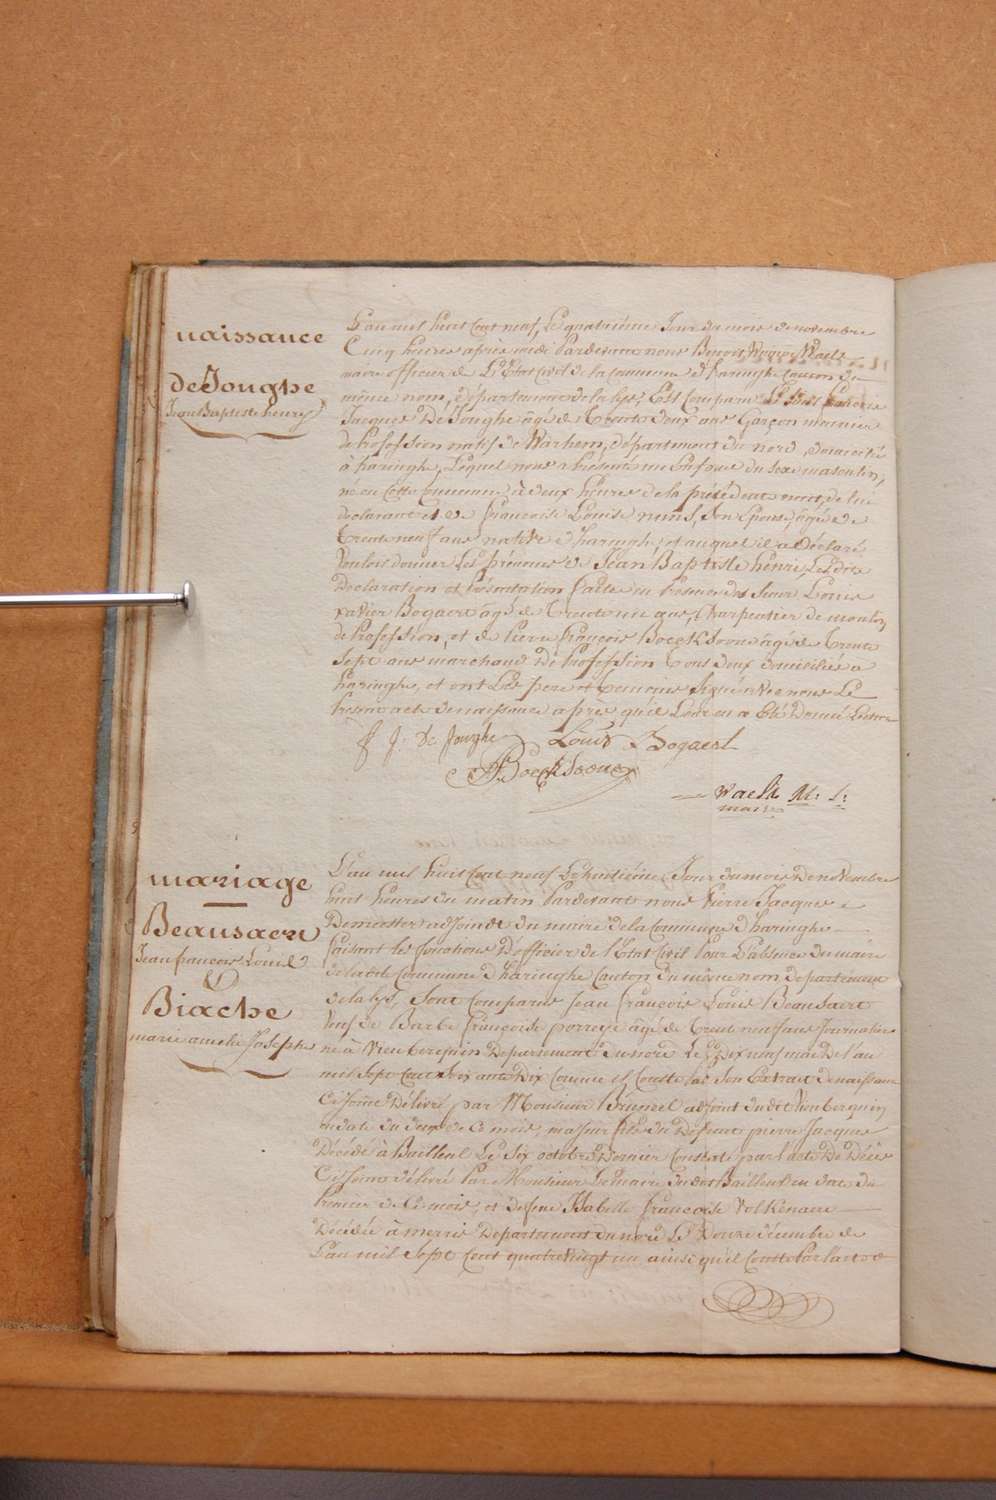 naissance
de Jonghe
Jean Baptiste henry
L'an mil huit Cent neuf, Le quatrième Jour du mois de novembre
Cinq heures après midi Pardevant nous Benoit Waels
maire officier de L'Etat Civil de la Commune d'haringhe Canton du
même nom, département de la lys, Est Comparu françois
Jacques De Jonghe âgé de Trente deux ans Garçon meunier
de Profession natif de Warhem, département du nord, domicilié
à haringhe, Lequel nous a Présenté un Enfant du sexe masculin,
né en Cette Commune à deux heures de la précédente nuit, de lui
déclarant et de françoise Louise nuns, Son Epouse, âgée de
Trente neuf ans native d'haringhe, et auquel il a Déclaré
Vouloir donner Les prénoms de Jean Baptiste henri, Les dites
Déclaration et Présentation faite en Présence des Sieur Louis
xavier Bogaert âgé de Trente un ans, Charpentier de moulin
de Profession, et de Pierre françois Boeckdoone âgé de Trente
Sept ans marchand De Profession Tous deux domiciliés à
haringhe, et ont Les père et temoins Signé avec nous Le
Présent acte de naissance après qu'il Leur en a Eté Donné Lecture
f J: de Jonghe Louis Bogaert
Boeckdoone
Waels M: J:
maire
mariage
Beausaert
Jean francois Louis
&
Biache
marie amelie Josephe
L'an mil huit Cent neuf Le huitième Jour du mois De novembre
huit heures du matin Pardevant nous Pierre Jacques
Demeester adjoint du maire de la Commune d'haringhe
faisant les fonctions D'officier de l'Etat Civil Pour L'absence du maire
de la dite Commune d'haringhe Canton du même nom departement
de la lys, Sont Comparus Jean françois Louis Beausaert
Veuf de Barbe françoise porreye âgé de Trente neuf ans Journalier
né à Vieu berquin Département du nord Le Dix mai de l'an
mil Sept Cent Soixante Dix Comme il Conste par Son Extrait de naissance
Ci Joint Délivré par Monsieur Bruneel adjoint du dit Vieu berquin
en date du deux de Ce mois, majeur fils du Defunt pierre Jacques
Décédé à Bailleul Le Six octobre Dernier Constaté par l'acte De Décès
Ci Joint délivré Par Monsieur Le maire du dit Bailleul en date du
Premier de Ce mois, et de fme Isabelle françoise Volkenaere
Décédée à merris Département du nord Le Douze décembre de
L'an mil Sept Cent quatre Vingt un ainsi qu'il Conste Par l'acte de